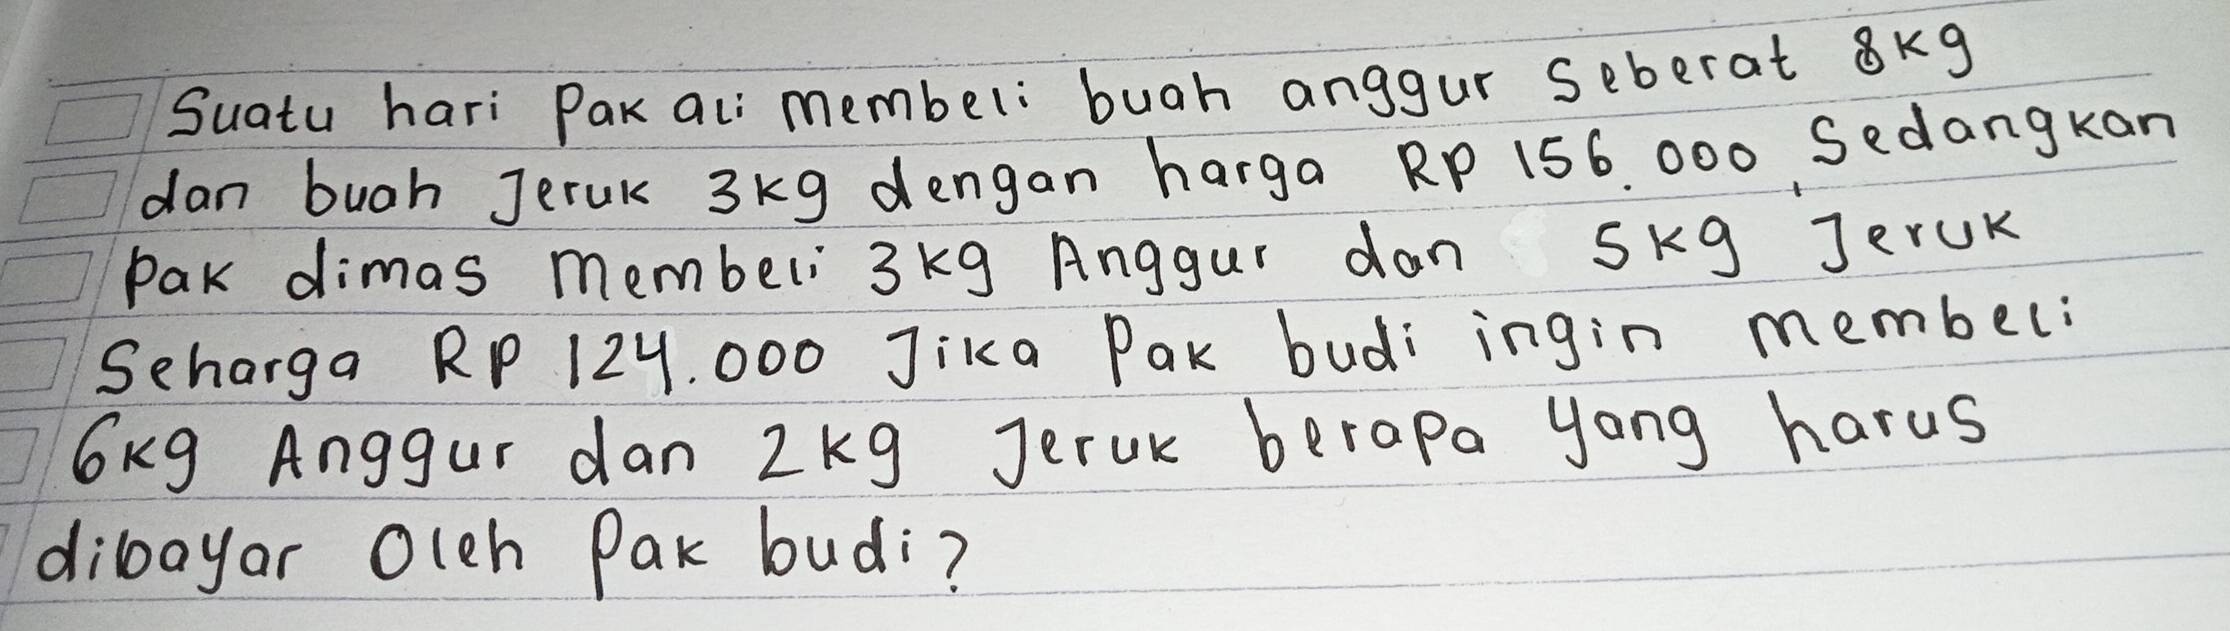 Suatu hari Pak ali membeli buah anggur Seberat 8kg
dan buah Jeruk 3kg dengan harga RP 156.000, Sedangkan
Pak dimas Membeli 3kg Anggur dan 5kg Jeruk
Seharga RP 124.000 Jika Pak budi ingin membeli
6kg Anggur dan 2kg Jeruk berapa yang harus
dibayar Oleh Pak budi?